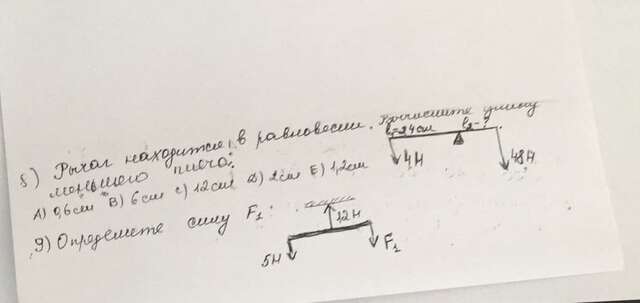 8) Рычаг находится в равновесии. Вычислите длину
меньшего плеча:
l₁=24см l₂-?
4Н 48Н
А) 0,6см В) 6см С) 12см Д) 2см Е) 1,2см
9) Определите силу F₁:
12Н
5Н F₁